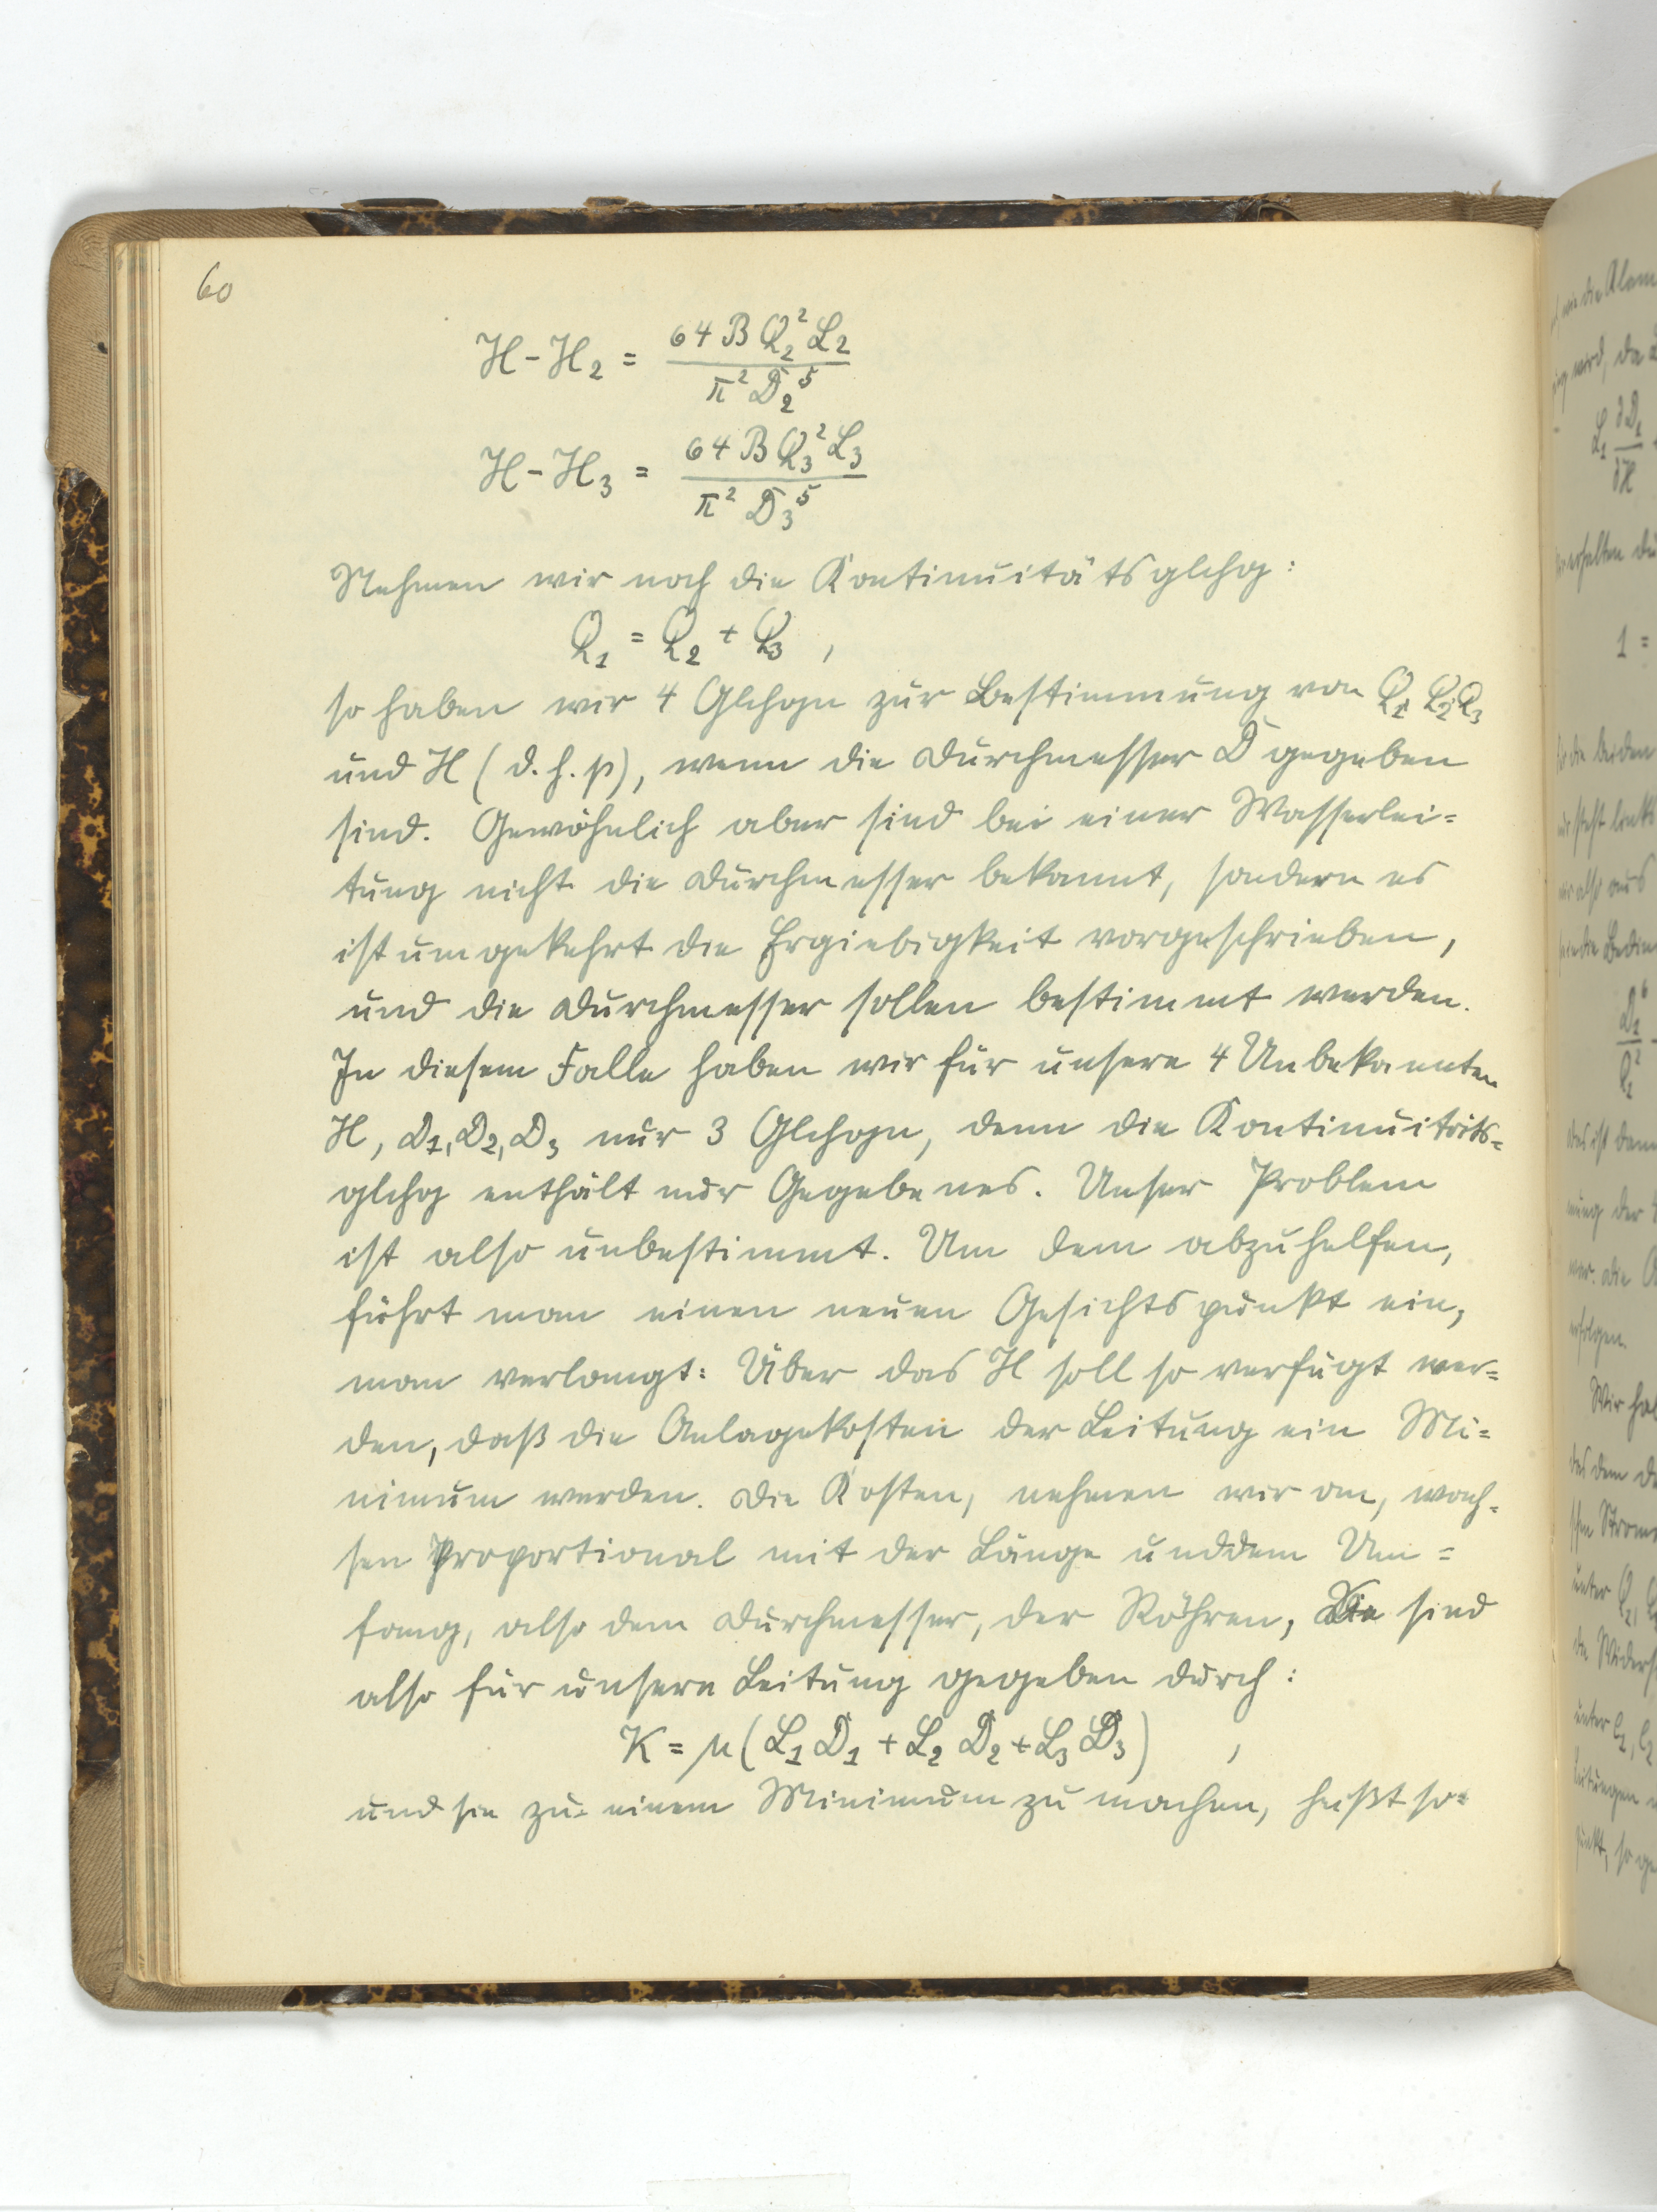 60
H - H₂ = 64 B Q₂² L₂ / π² D₂⁵
H - H₃ = 64 B Q₃² L₃ / π² D₃⁵
Nehmen wir noch die Kontinuitätsglchg:
Q₁ = Q₂ + Q₃ ,
so haben wir 4 Glchgn zur Bestimmung von Q₁ Q₂ Q₃
und H (d. h. p), wenn die Durchmesser D gegeben
sind. Gewöhnlich aber sind bei einer Wasserlei=
tung nicht die Durchmesser bekannt, sondern es
ist umgekehrt die Ergiebigkeit vorgeschrieben,
und die Durchmesser sollen bestimmt werden.
In diesem Falle haben wir für unsere 4 Unbekannten
H, D₁, D₂, D₃ nur 3 Glchgn, denn die Kontinuitäts=
glchg enthält nur Gegebenes. Unser Problem
ist also unbestimmt. Um dem abzuhelfen,
führt man einen neuen Gesichtspunkt ein,
man verlangt: Über das H soll so verfügt wer=
den, daß die Anlagekosten der Leitung ein Mi=
nimum werden. Die Kosten, nehmen wir an, wach=
sen proportional mit der Länge und dem Um=
fang, also dem Durchmesser, der Röhren, Sie sind
also für unsere Leitung gegeben durch:
K = μ (L₁ D₁ + L₂ D₂ + L₃ D₃) ,
und sie zu einem Minimum zu machen, heißt so=
wie die
wird, da
L₁ ∂D₁/∂H
erhalten
1 =
die beiden
steht links
also aus
D₁⁶
Q₁²
ist
der
war. Die
erfolgen.
Wir
das dem
Strom
unter Q₁,
unter l₁, l₂
Leitungen
punkt, so